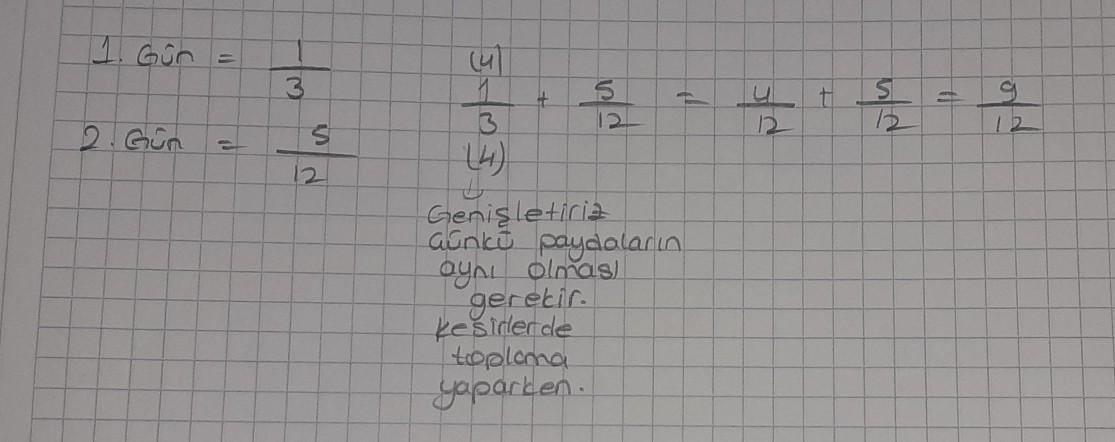 1. Gün = 1/3
2. Gün = 5/12
(4)
1/3 + 5/12 = 4/12 + 5/12 = 9/12
(4)
Genişletiriz
çünkü paydaların
aynı olması
gerekir.
kesirlerde
toplama
yaparken.